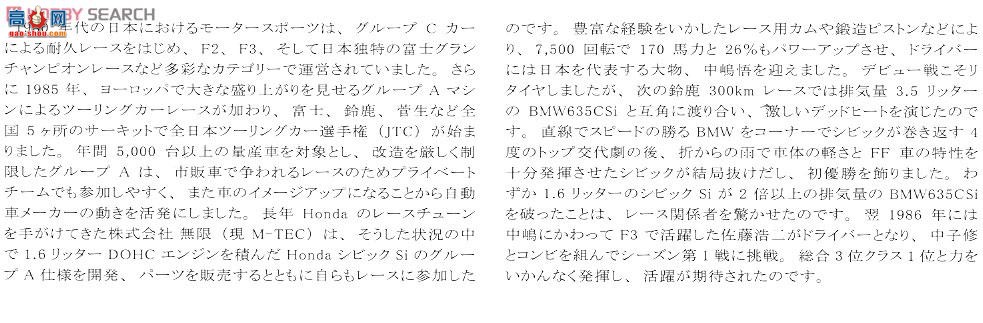 HOBBY SEARCH
高高
年代の日本におけるモータースポーツは、グループ C カー
による耐久レースをはじめ、F2、F3、そして日本独特の富士グラン
チャンピオンレースなど多彩なカテゴリーで運営されていました。さら
に 1985 年、ヨーロッパで大きな盛り上がりを見せるグループ A マシ
ンによるツーリングカーレースが加わり、富士、鈴鹿、菅生など全
国 5ヶ所のサーキットで全日本ツーリングカー選手権（JTC）が始ま
りました。年間 5,000 台以上の量産車を対象とし、改造を厳しく制
限したグループ A は、市販車で争われるレースのためプライベート
チームでも参加しやすく、また車のイメージアップになることから自動
車メーカーの動きを活発にしました。長年 Honda のレースチューン
を手がけてきた株式会社 無限（現 M-TEC）は、そうした状況の中
で 1.6 リッター DOHC エンジンを積んだ Honda シビック Si のグルー
プ A 仕様を開発、パーツを販売するとともに自らもレースに参加した
のです。豊富な経験をいかしたレース用カムや鍛造ピストンなどによ
り、7,500 回転で 170 馬力と 26%もパワーアップさせ、ドライバー
には日本を代表する大物、中嶋悟を迎えました。デビュー戦こそリ
タイヤしましたが、次の鈴鹿 300km レースでは排気量 3.5 リッター
の BMW635CSi と互角に渡り合い、激しいデッドヒートを演じたので
す。直線でスピードの勝る BMW をコーナーでシビックが巻き返す 4
度のトップ交代劇の後、折からの雨で車体の軽さと FF 車の特性を
十分発揮させたシビックが結局抜けだし、初優勝を飾りました。わ
ずか 1.6 リッターのシビック Si が 2 倍以上の排気量の BMW635CSi
を破ったことは、レース関係者を驚かせたのです。翌 1986 年には
中嶋にかわって F3 で活躍した佐藤浩二がドライバーとなり、中子修
とコンビを組んでシーズン第 1 戦に挑戦。総合 3 位クラス 1 位と力を
いかんなく発揮し、活躍が期待されたのです。